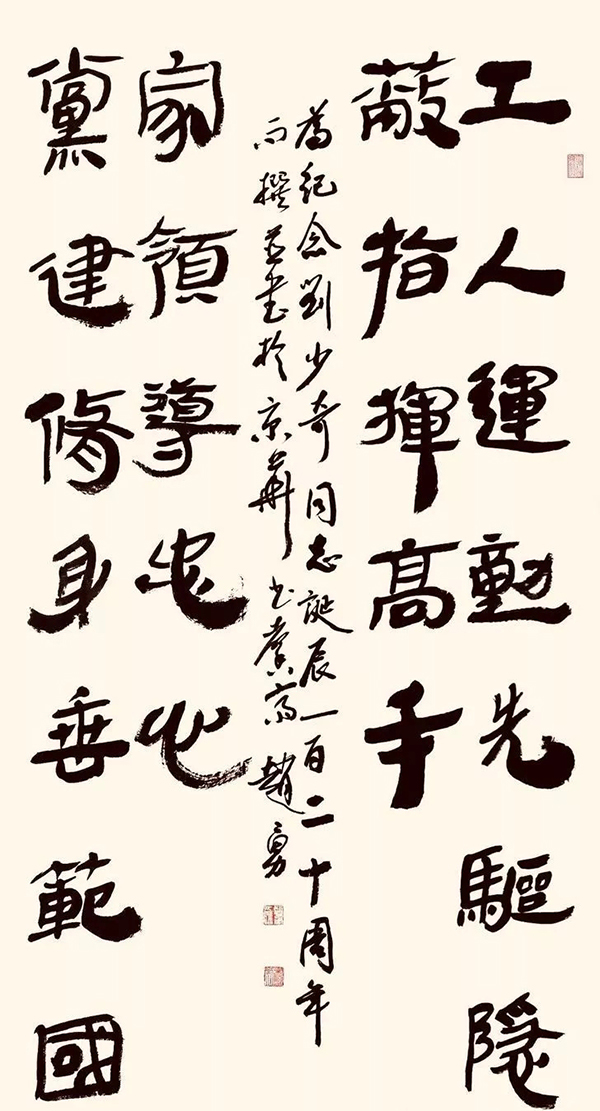 工人運動先驅隱
蔽指揮高手
黨建脩身垂範國
家領導忠心
為紀念劉少奇同志誕辰一百二十周年
而撰并書於京華 趙勇